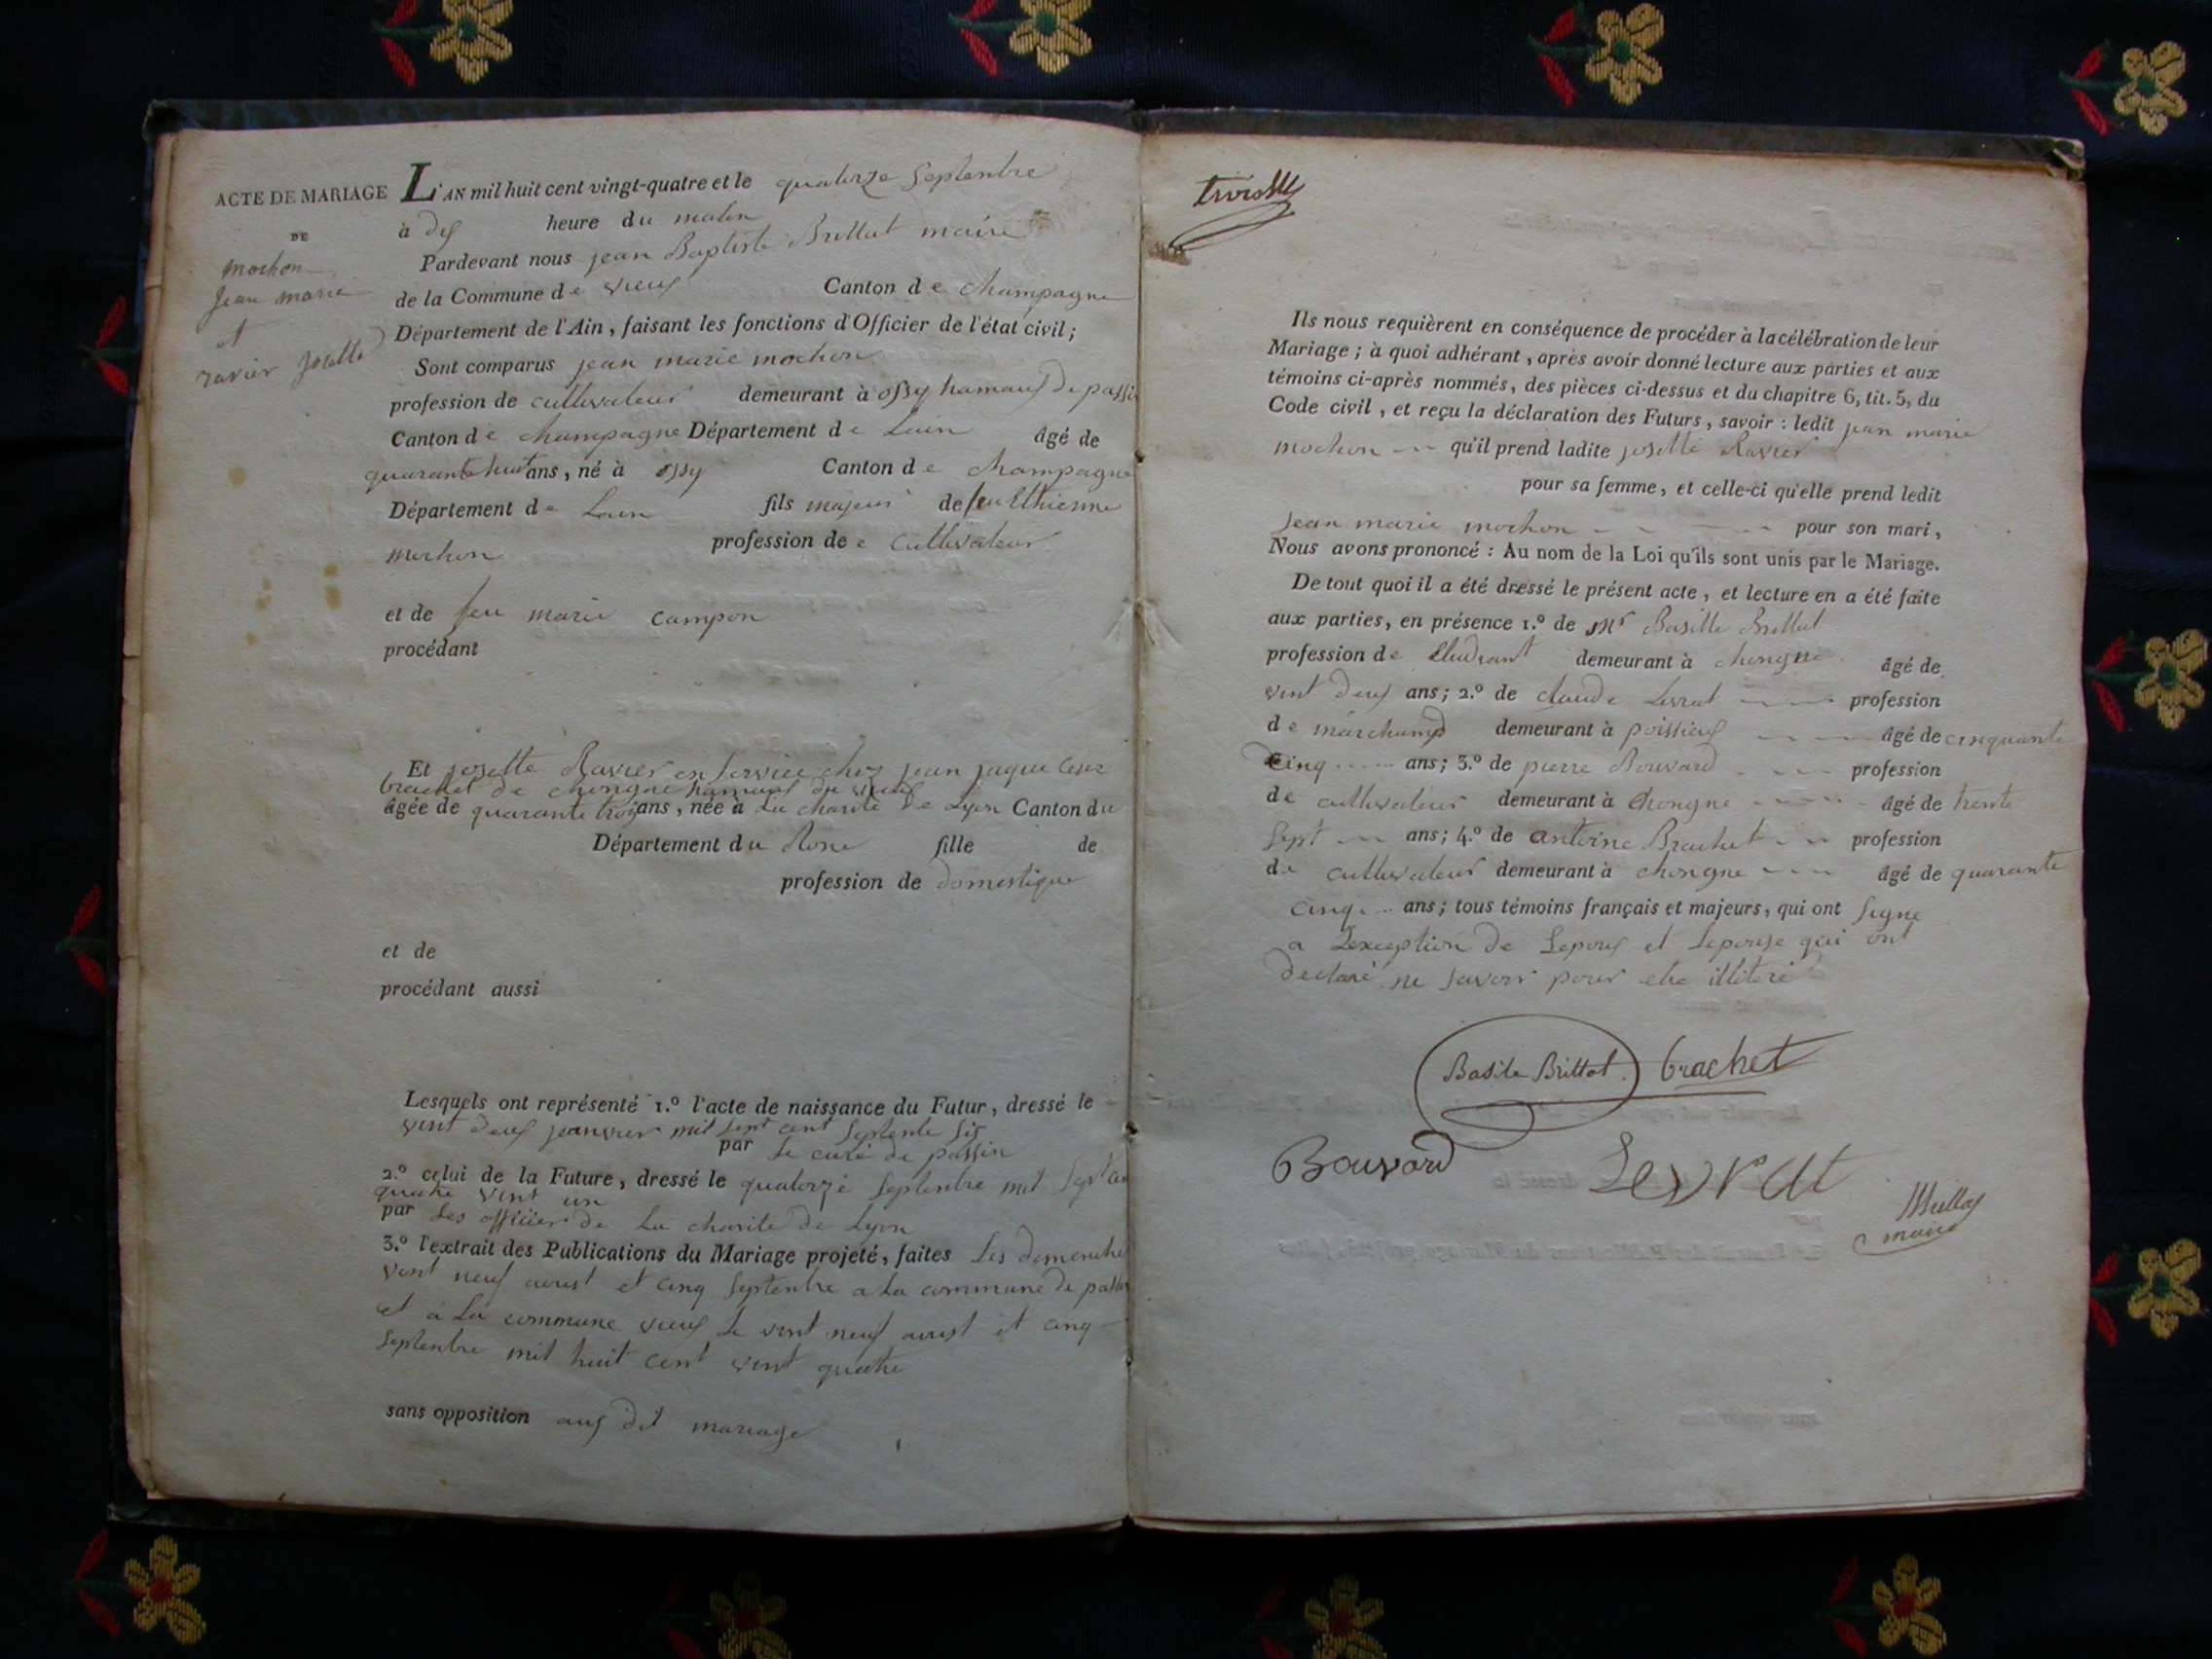 ACTE DE MARIAGE
DE
mochon
Jean marie
et
ravier Josette
L'AN mil huit cent vingt-quatre et le quatorze Septembre
à dix heure du matin
Pardevant nous jean Baptiste Brillat maire
de la Commune de vieux Canton de champagne
Département de l'Ain, faisant les fonctions d'Officier de l'état civil;
Sont comparus jean marie mochon
profession de cultivateur demeurant à ossy hamaux de passin
Canton de champagne Département de Lain âgé de
quarante huit ans, né à ossy Canton de champagne
Département de Lain fils majeur de feu Ethienne
mochon profession de e cultivateur
et de feu marie campon
procédant
Et josette Ravier en Service chez jean jaque
brachet de chongne hamaux du vieux
âgée de quarante trois ans, née à La charité de Lyon Canton du
Département du Rone fille de
profession de domestique
et de
procédant aussi
Lesquels ont représenté 1.º l'acte de naissance du Futur, dressé le
vint deux janvier mil sept cent Septente Six
par Le curé de passin
2.º celui de la Future, dressé le quatorze Septembre mil Sept cen
quatre vint un
par Les officier de La charité de Lyon
3.º l'extrait des Publications du Mariage projeté, faites Les domenche
vint neuf aoust et cinq Septembre a La commune de passin
et a La commune vieux Le vint neuf aoust et cinq
Septembre mil huit cent vint quatre
sans opposition aux dit mariage
Ils nous requièrent en conséquence de procéder à la célébration de leur
Mariage; à quoi adhérant, après avoir donné lecture aux parties et aux
témoins ci-après nommés, des pièces ci-dessus et du chapitre 6, tit. 5, du
Code civil, et reçu la déclaration des Futurs, savoir: ledit jean marie
mochon qu'il prend ladite josette Ravier
pour sa femme, et celle-ci qu'elle prend ledit
Jean marie mochon pour son mari,
Nous avons prononcé: Au nom de la Loi qu'ils sont unis par le Mariage.
De tout quoi il a été dressé le présent acte, et lecture en a été faite
aux parties, en présence 1.º de Mr Basille Brillat
profession de Etudiant demeurant à chongne âgé de
vint deux ans; 2.º de claude Levrat profession
de marchand demeurant à poissieux âgé de cinquante
Cinq ans; 3.º de pierre Bouvard profession
de cultivateur demeurant à Chongne âgé de trente
Sept ans; 4.º de antoine Brachet profession
de cultivateur demeurant à chongne âgé de quarante
cinq ans; tous témoins français et majeurs, qui ont Signe
a Lexception de Lepoux et Lepouse qui ont
declaré ne Savoir pour etre illiteré
Basile Brillat. brachet
Bouvard Levrat
maire